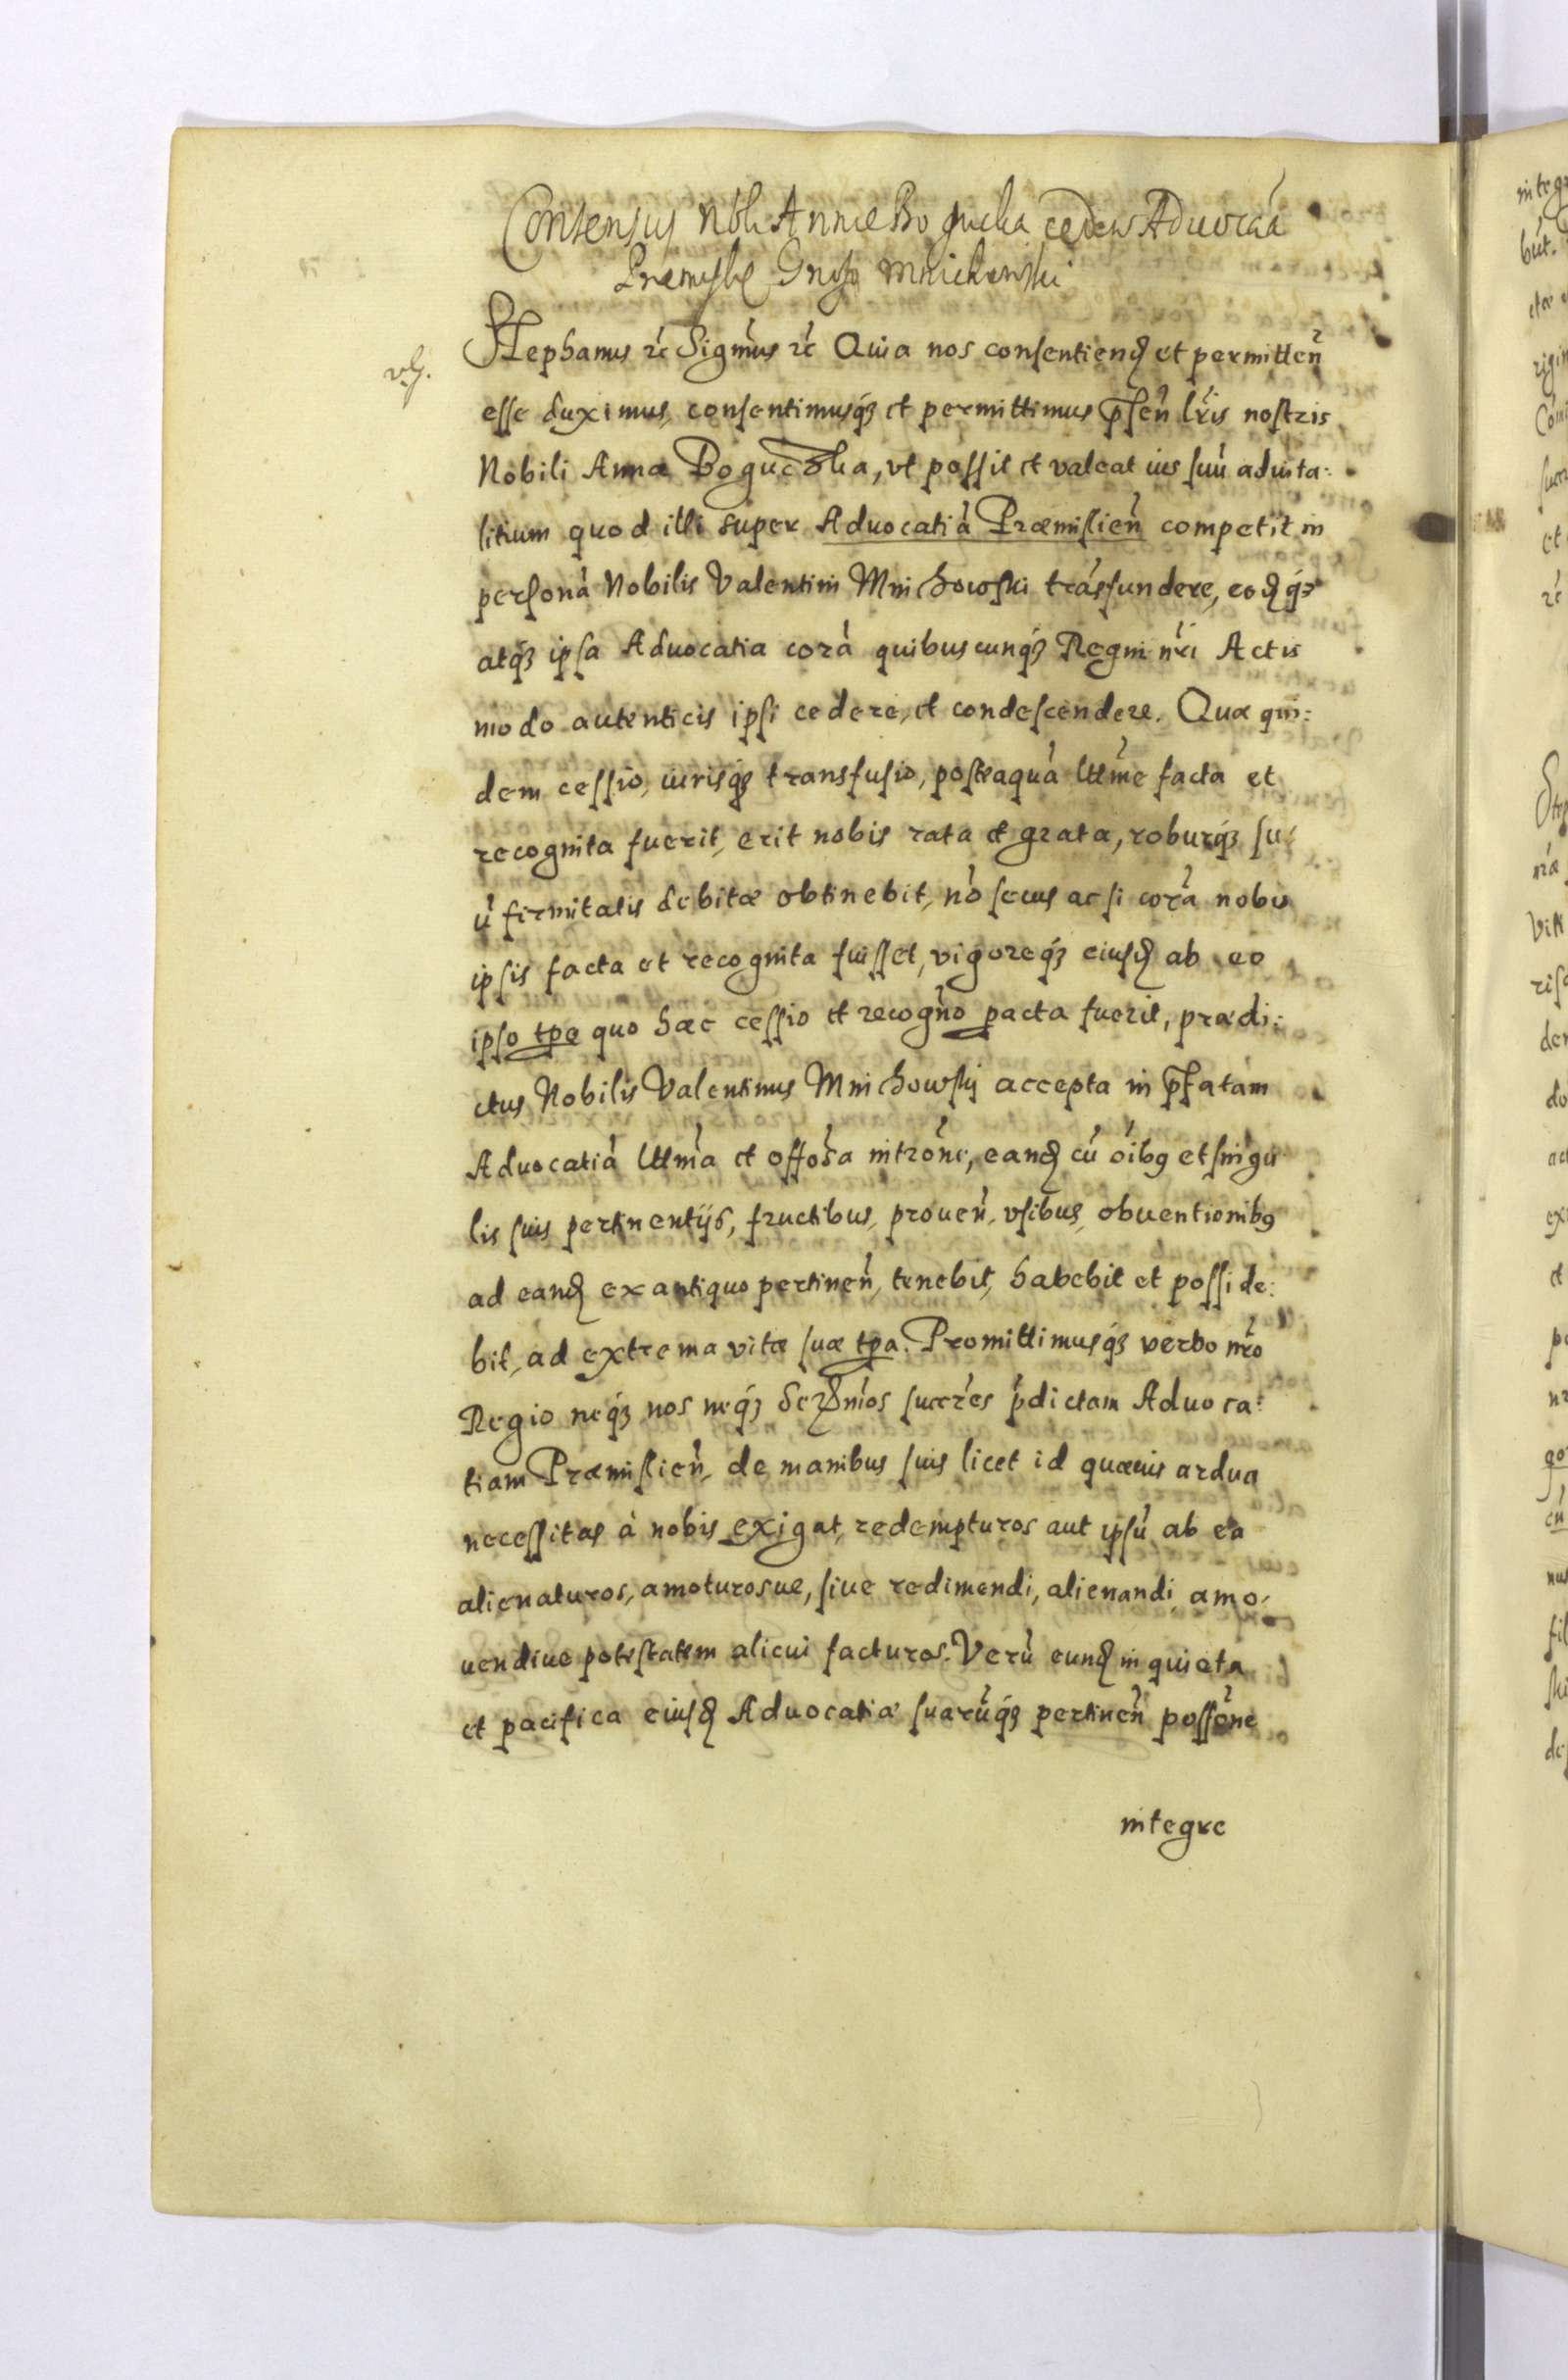 Consensus Nbli Annae Bogucka cedens Aduocaa
Premysl Gnoso Mnichowski
Stephanus etc Sigmus etc Quia nos consentiend et permitten
esse duximus, consentimusq3 et permittimus psen lris nostris
Nobili Annæ Bogucska, vt possit et valeat ius suu aduita:
litium quod illi super Aduocatia Præmislien competit in
persona Nobilis Valentini Mnichowski trasfundere, eodq3
atq3 ipsa Aduocatia cora quibuscunq3 Regni nri Actis
modo autenticis ipsi cedere, et condescendere. Quæ qui:
dem cessio, iurisq3 transfusio, posteaqua lttme facta et
recognita fuerit, erit nobis rata et grata, roburq3 su:
u firmitatis debitæ obtinebit, no secus ac si cora nobis
ipsis facta et recognita fuisset, vigoreq3 eiusd ab eo
ipso tpe quo hæc cessio et recogno pacta fuerit, prædi:
ctus Nobilis Valentinus Mnichowskij accepta in pfatam
Aduocatia lttma et offosa introne, eand cu oibg et singu
lis suis pertinentijs, fructibus, prouen, vsibus, obuentionibg
ad eand ex antiquo pertinen, tenebit, habebit et posside:
bit, ad extrema vitæ suæ tpa. Promittimusq3 verbo nro
Regio neq3 nos neq3 Sermos succres pdictam Aduoca:
tiam Præmislien, de manibus suis licet id quæuis ardua
necessitas à nobis exigat, redempturos aut ipsu ab ea
alienaturos, amoturosue, siue redimendi, alienandi amo:
uendiue potestatem alicui facturos. Veru eund in quieta
et pacifica eiusd Aduocatiæ suaruq3 pertinen possone
integre